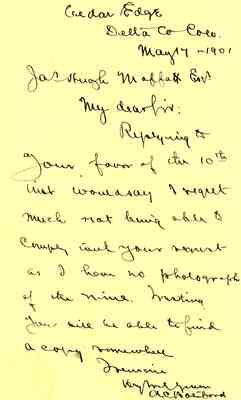 Cedar Edge
Delta Co Colo.
May 17 - 1901
Jas Hugh Moffatt Esqr
My dear Sir:
Replying to
your favor of the 10th
inst would say I regret
much not being able to
comply with your request
as I have no photograph
of the mine. Trusting
you will be able to find
a copy somewhere
I remain
Very truly yours